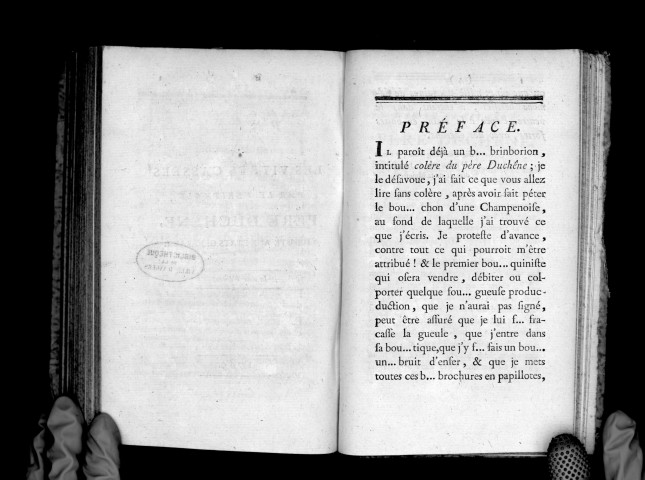 PRÉFACE.
IL paroît déjà un b... brinborion,
intitulé colère du père Duchêne ; je
le désavoue, j'ai fait ce que vous allez
lire sans colère, après avoir fait péter
le bou... chon d'une Champenoise,
au fond de laquelle j'ai trouvé ce
que j'écris. Je proteste d'avance,
contre tout ce qui pourroit m'être
attribué ! & le premier bou... quiniste
qui osera vendre, débiter ou col-
porter quelque fou... gueuse produc-
duction, que je n'aurai pas signé,
peut être assuré que je lui f... fra-
casse la gueule, que j'entre dans
sa bou... tique, que j'y f... fais un bou...
un... bruit d'enfer, & que je mets
toutes ces b... brochures en papillotes,